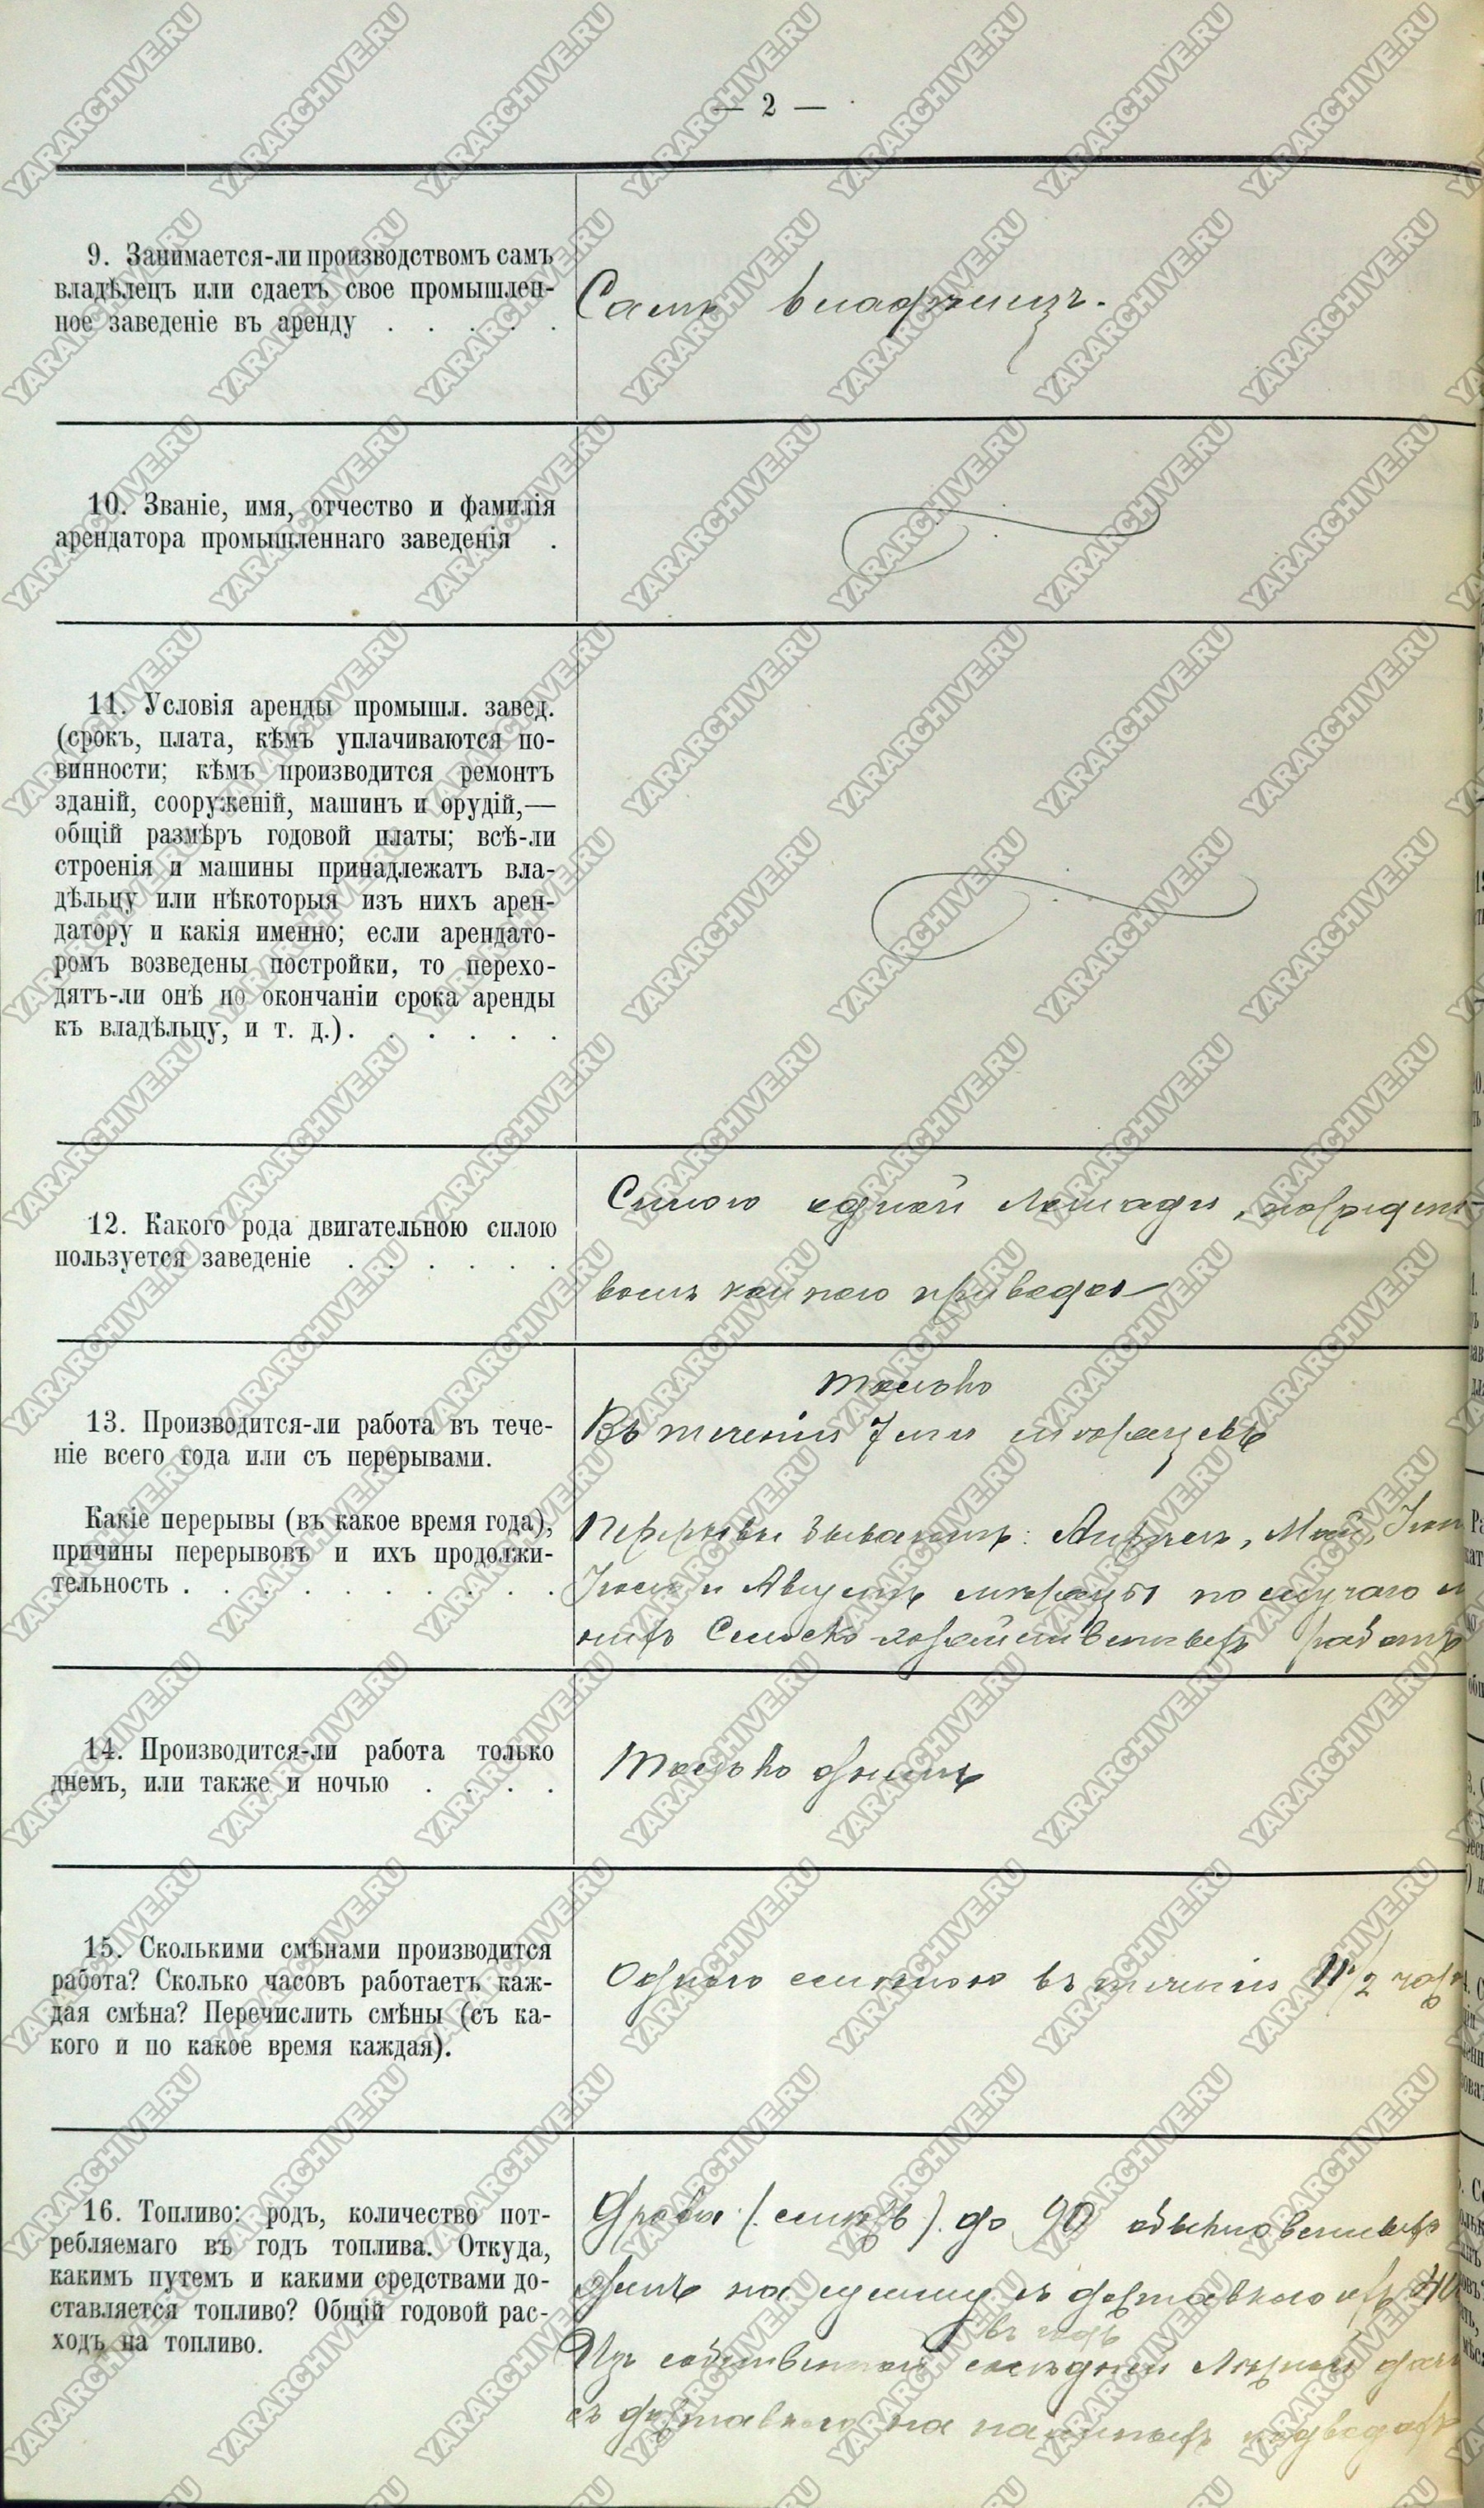 — 2 —
9. Занимается-ли производствомъ самъ
владѣлецъ или сдаетъ свое промышлен-
ное заведеніе въ аренду . . . . .
Самъ владѣлецъ.
10. Званіе, имя, отчество и фамилія
арендатора промышленнаго заведенія .
11. Условія аренды промышл. завед.
(срокъ, плата, кѣмъ уплачиваются по-
винности; кѣмъ производится ремонтъ
зданій, сооруженій, машинъ и орудій,—
общій размѣръ годовой платы; всѣ-ли
строенія и машины принадлежатъ вла-
дѣльцу или нѣкоторыя изъ нихъ арен-
датору и какія именно; если арендато-
ромъ возведены постройки, то перехо-
дятъ-ли онѣ по окончаніи срока аренды
къ владѣльцу, и т. д.). . . . . .
12. Какого рода двигательною силою
пользуется заведеніе . . . . . .
Силою одной лошади, посредст-
вомъ коннаго привода
13. Производится-ли работа въ тече-
ніе всего года или съ перерывами.
только
Въ теченіи 7ми мѣсяцевъ
Какіе перерывы (въ какое время года),
причины перерывовъ и ихъ продолжи-
тельность . . . . . . . . . .
Перерывы бываютъ: Апрѣль, Май, Іюн
Іюль и Августъ мѣсяцы по случаю
Сельско-хозяйственныхъ работъ
14. Производится-ли работа только
днемъ, или также и ночью . . . .
Только днемъ
15. Сколькими смѣнами производится
работа? Сколько часовъ работаетъ каж-
дая смѣна? Перечислить смѣны (съ ка-
кого и по какое время каждая).
Одною смѣною въ теченіи 11½ час
16. Топливо: родъ, количество пот-
ребляемаго въ годъ топлива. Откуда,
какимъ путемъ и какими средствами до-
ставляется топливо? Общій годовой рас-
ходъ на топливо.
Дрова (смѣсь). до 90 обыкновенныхъ
на сумму съ доставкою
въ годъ
Изъ собственной сосѣдней лѣсной дачи
съ доставкою на наемныхъ подводахъ
YARARCHIVE.RU